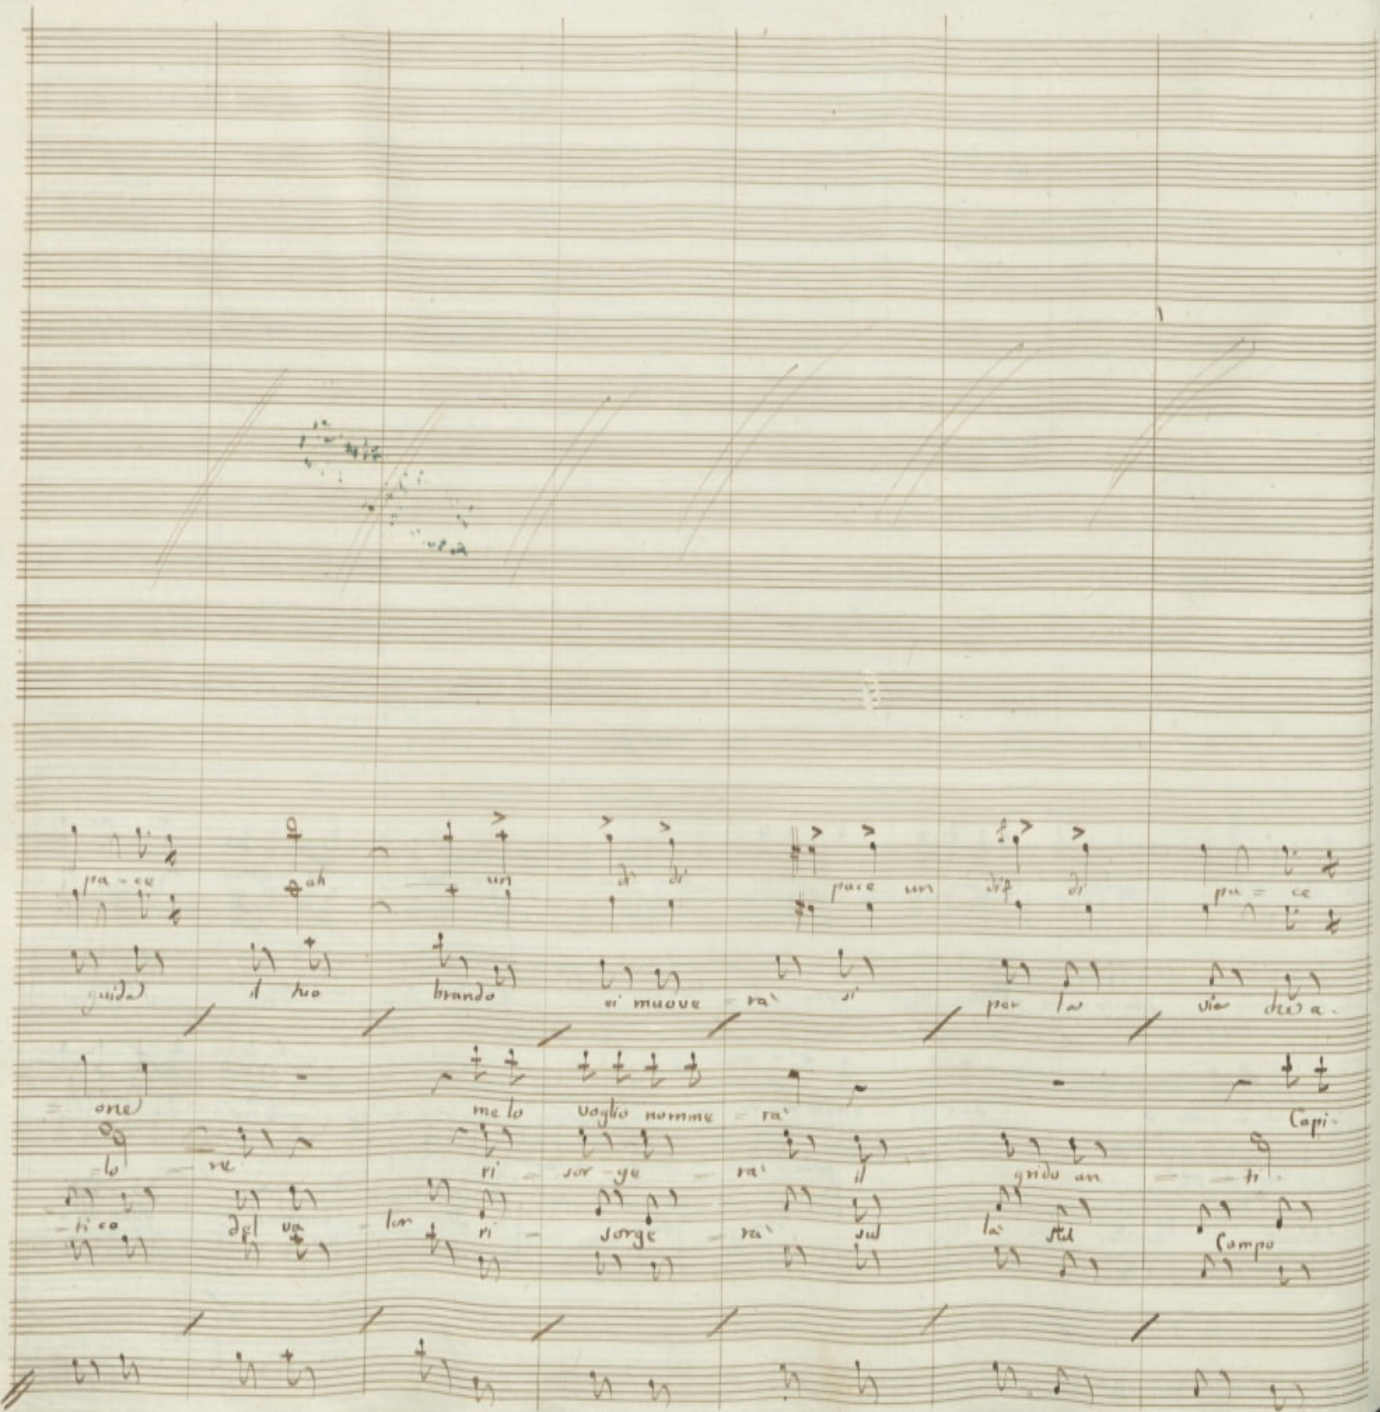 pa - ce ah un di di pace un di di pa = ce
guida il tuo brando si muove - rà si per la via
= one me lo voglio nomme = rà Capi-
- lo - re ri - sor - ge - rà il grido an - - ti -
- tico del va - lor ri - sorge - rà sul la Campo